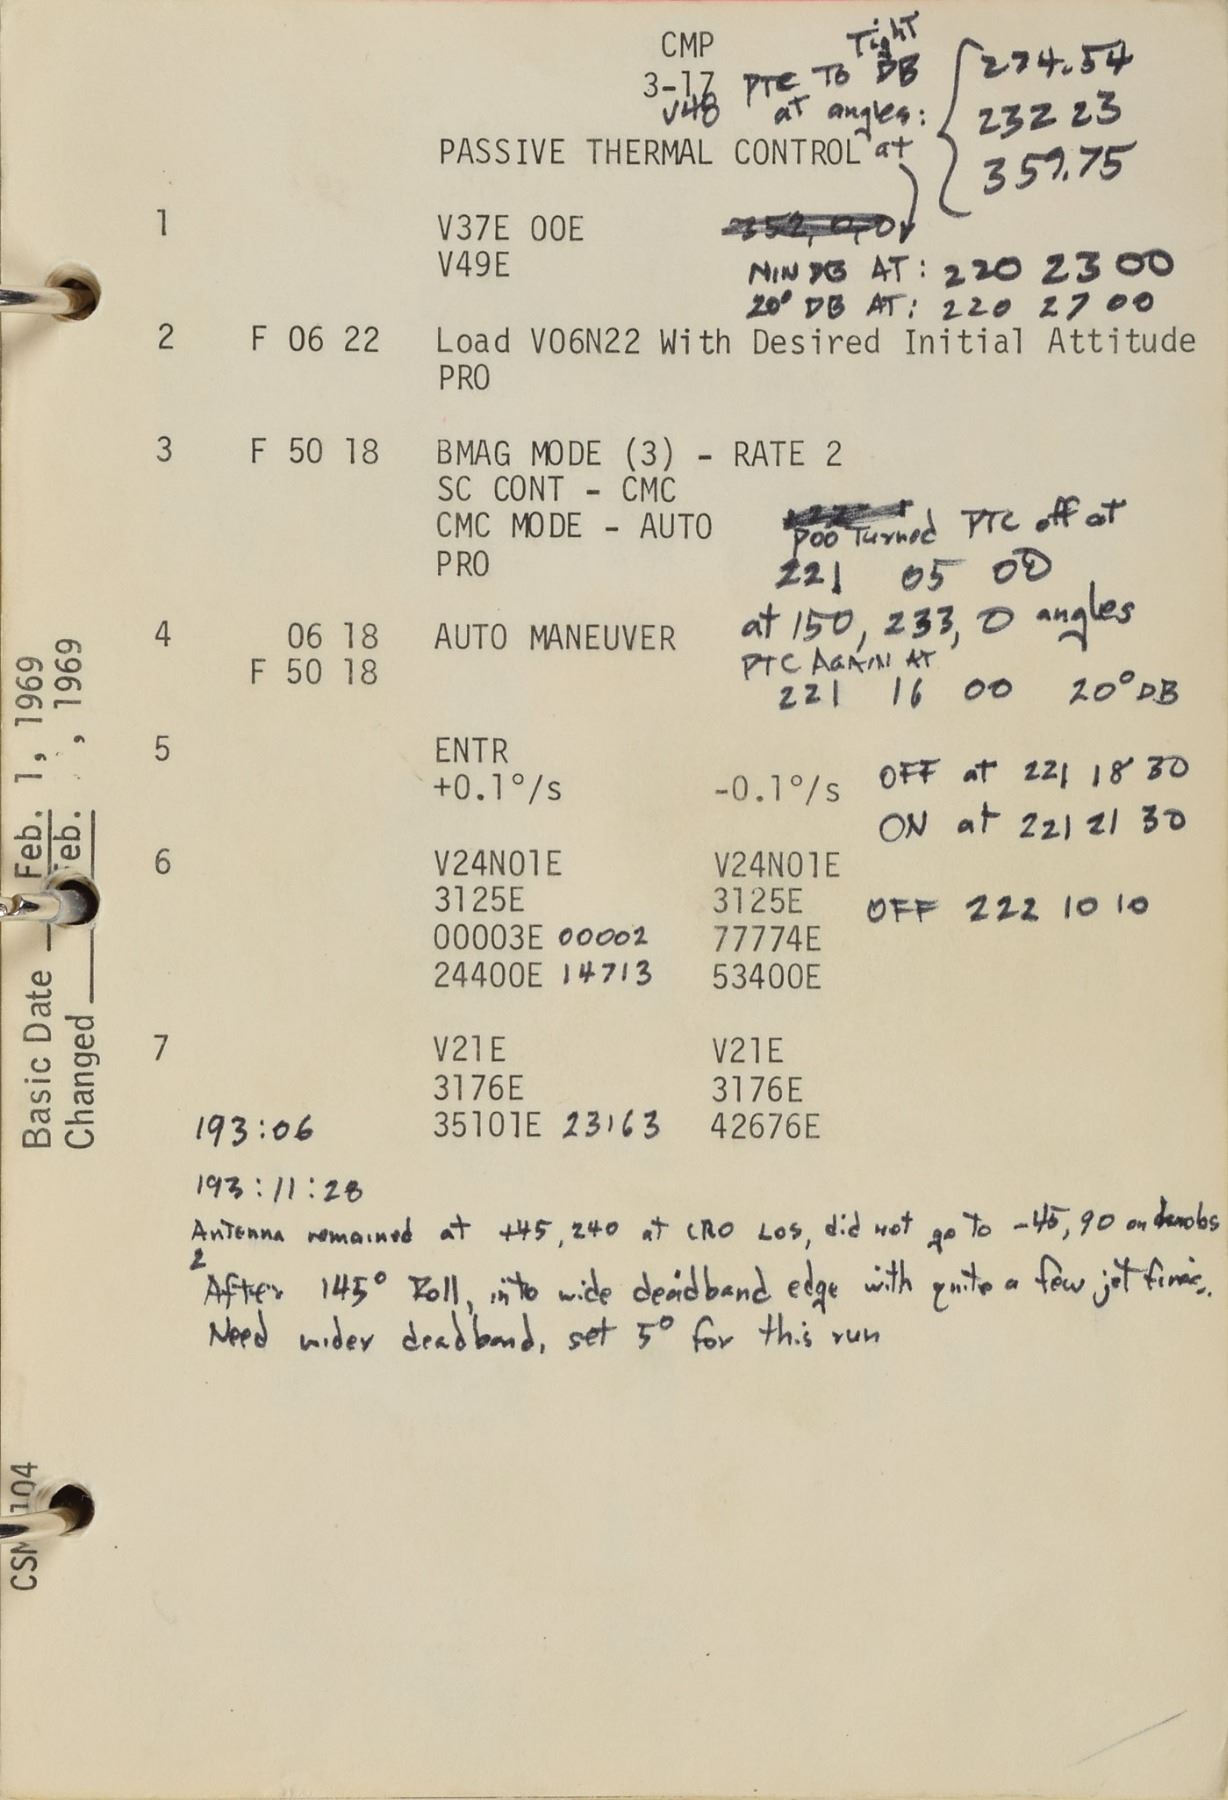 CMP
3-17
V48
Tight
PTC TO DB
at angles:
274.54
232 23
359.75
PASSIVE THERMAL CONTROL at
1 V37E 00E
V49E
352, 0,0
MIN DB AT: 220 23 00
20° DB AT: 220 27 00
2 F 06 22 Load V06N22 With Desired Initial Attitude
PRO
3 F 50 18 BMAG MODE (3) - RATE 2
SC CONT - CMC
CMC MODE - AUTO
PRO
P00 Turned PTC off at
221 05 00
at 150, 233, 0 angles
PTC AGAIN AT
221 16 00 20° DB
4 06 18 AUTO MANEUVER
F 50 18
5 ENTR
+0.1°/s -0.1°/s
OFF at 221 18 30
ON at 221 21 30
6 V24N01E V24N01E
3125E 3125E
OFF 222 10 10
00003E 00002 77774E
24400E 14713 53400E
7 V21E V21E
3176E 3176E
193:06 35101E 23163 42676E
193:11:28
Antenna remained at +45, 240 at CRO LOS, did not go to -45, 90 on
2
After 145° Roll, into wide deadband edge with quite a few jet firings.
Need wider deadband, set 5° for this run
Basic Date Feb. 1, 1969
Changed Feb. , 1969
CSM 104